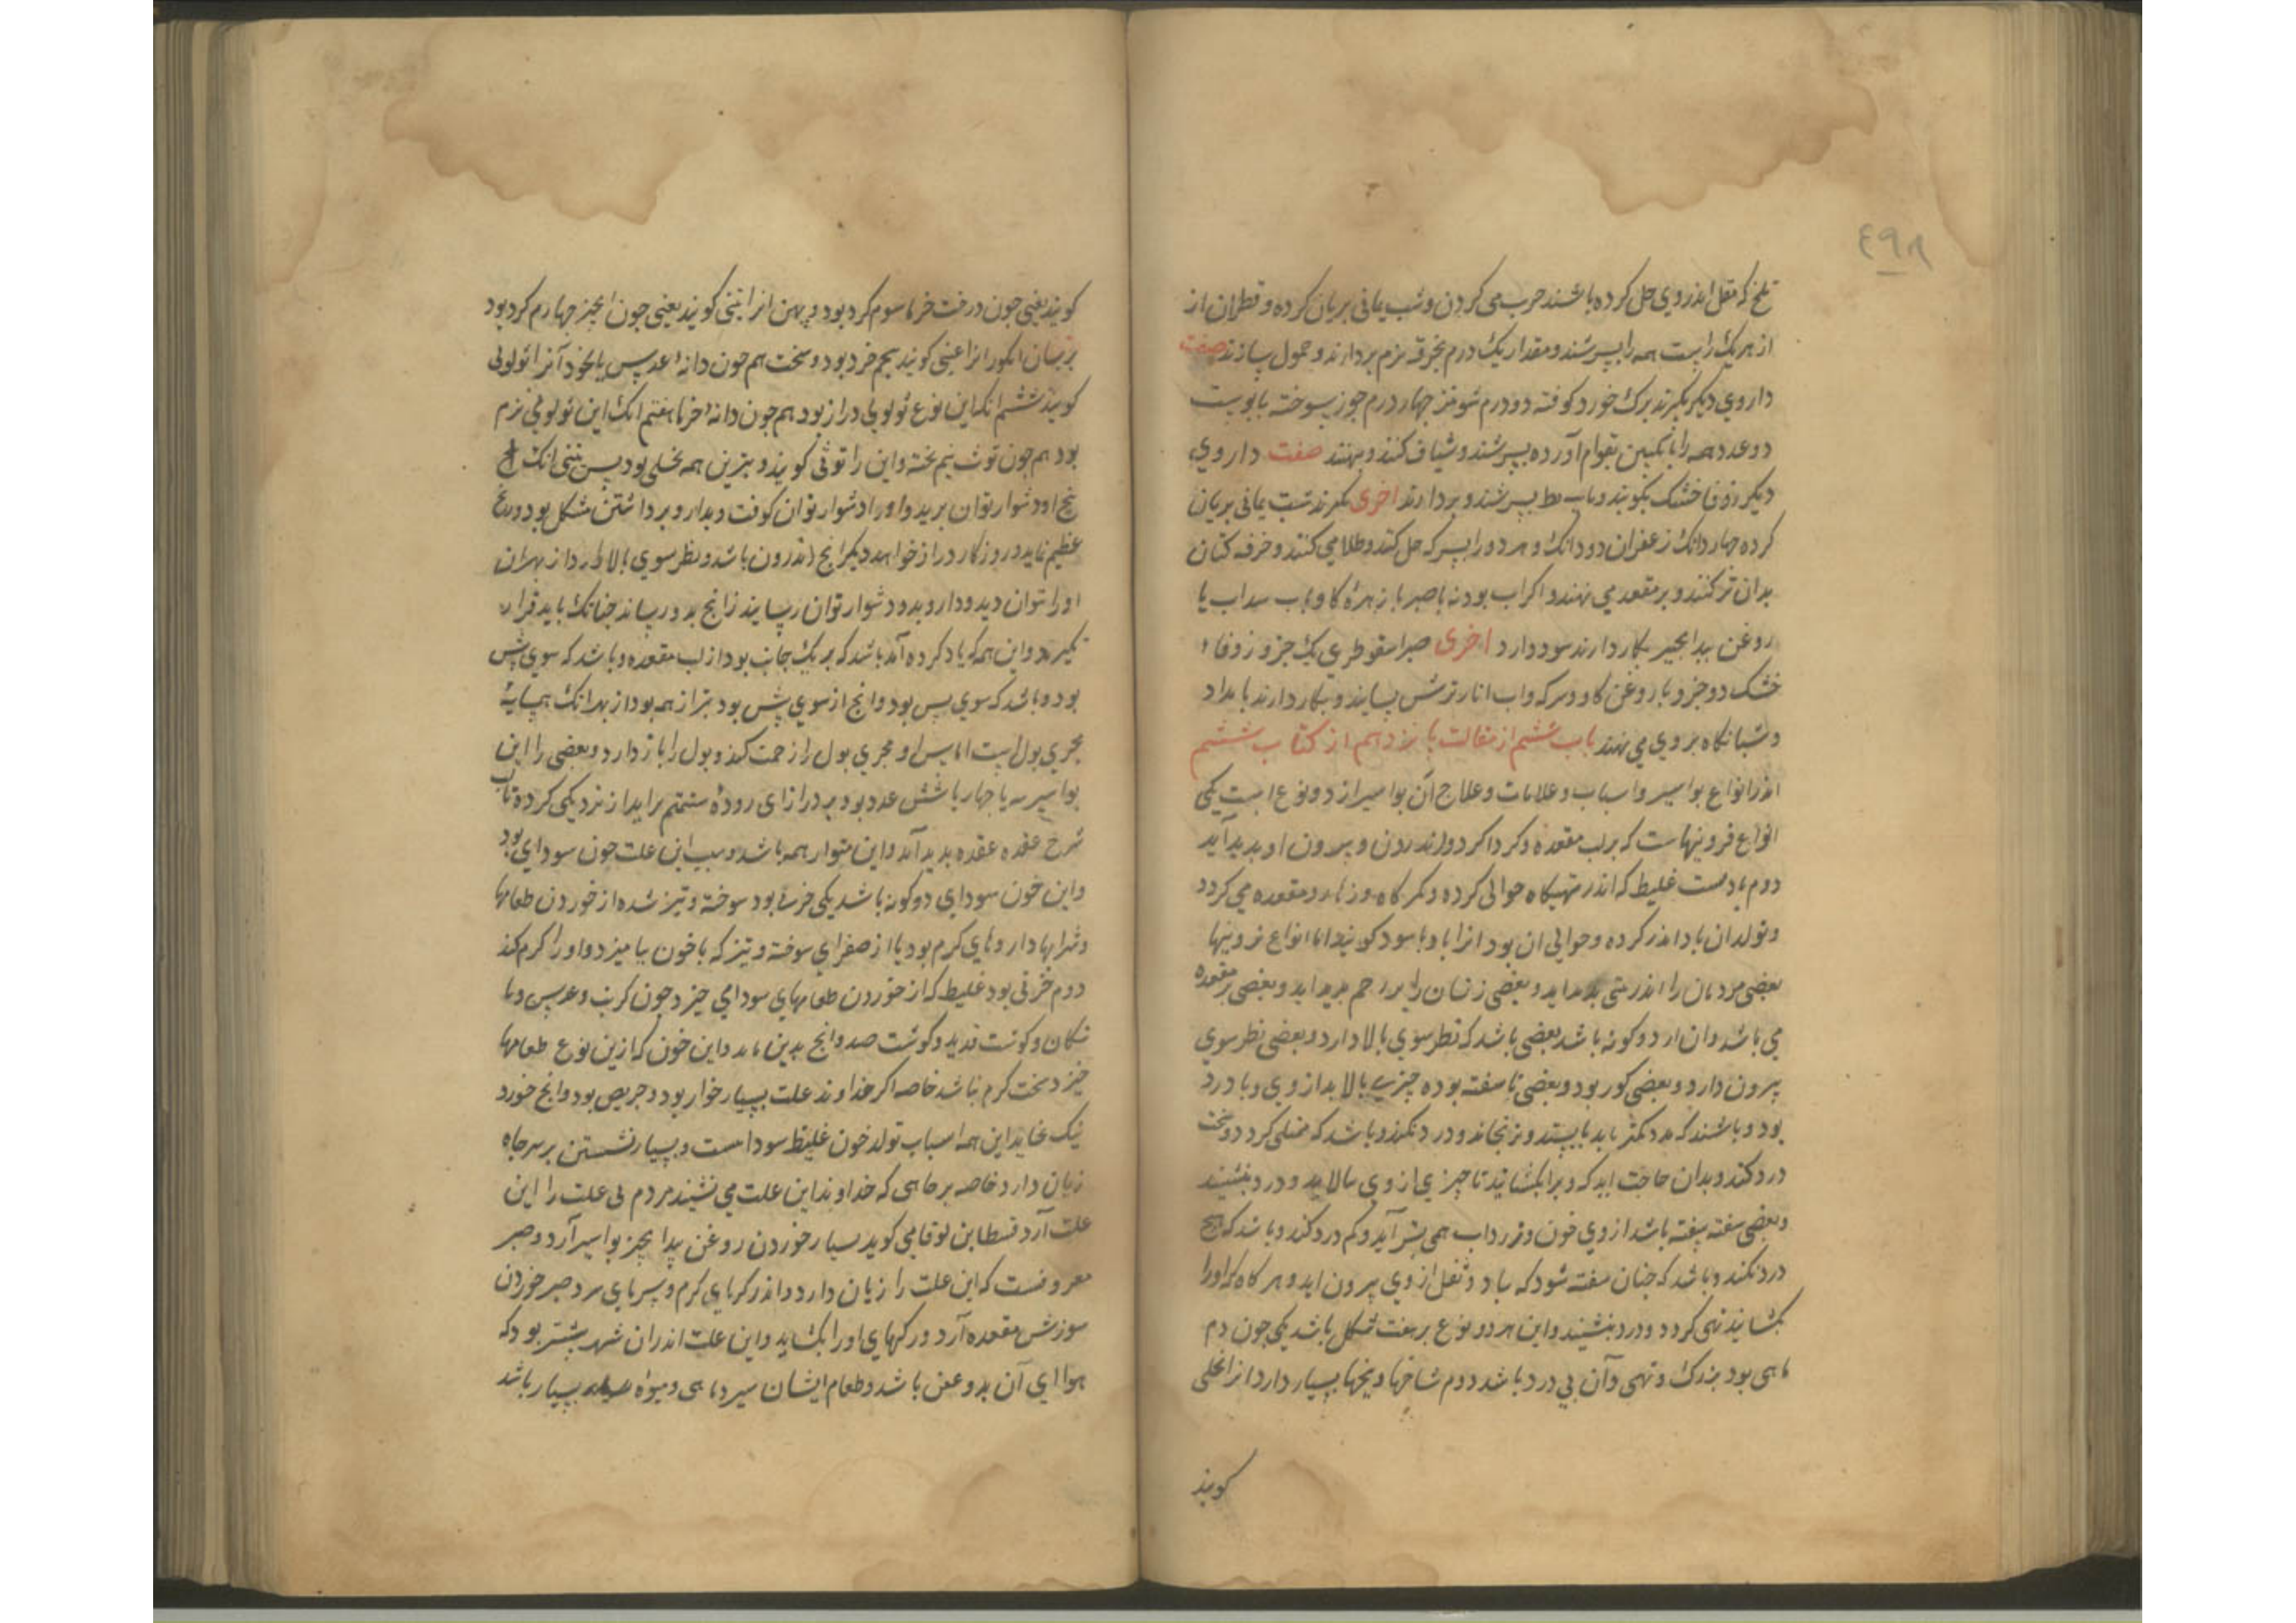 ٤٩٨
تلخ که مقل اندروی حل کرده باشند چرب می کردن وشب یمانی بریان کرده و قطران از
از هر یک راست همه را بسرشند ومقدار یک درم بخرقه نرم بردارند وحمول سازند صفت
داروی دیکر بکیرند برک خورد کوفته دو درم شونیز چهار درم جوز سوخته با پوست
دو عدد همه را بانکبین بقوام آورده بسرشند وشیاف کنند وبنهند صفت داروی
دیکر زوفا خشک بکوبند وباب بط بسرشند وبردارند اخری بکیرند شب یمانی بریان
کرده چهار دانک زعفران دو دانک و هر دو را بسرکه حل کنند وطلا می کنند وخرقه کتان
بدان تر کنند وبر مقعد می نهند واکر آب بودنه با صبر با زهره کاو وباب سداب یا
روغن بیدانجیر بکار دارند سود دارد اخری صبر اسقوطری یک جزو زوفا
خشک دو جزو با روغن کاو وسرکه واب انار ترش بسایند وبکار دارند بامداد
وشبانکاه بروی می نهند باب ششم از مقالت بانزدهم از کتاب ششم
اندر انواع بواسیر واسباب وعلامات وعلاج آن بواسیر از دو نوع است یکی
انواع فزونیهاست که بر لب مقعده وکرداکرد واندرون وبیرون او بدید آید
دوم بادیست غلیظ که اندر تهیکاه حوالی کرده وکمرکاه وزهار ومقعده می کردد
وتولد ان باد اندر کرده وحوالی ان بود انرا باد باسور کویند اما انواع فزونیها
بعضی مردمان را اندر بینی بدید اید وبعضی زنان را بر رحم بدید اید وبعضی بر مقعده
می باشد وان از دو کونه باشد بعضی باشد که نظر سوی بالا دارد وبعضی نظر سوی
بیرون دارد وبعضی کور بود وبعضی ناسفته بوده چیزی بالا بد از وی وبا درد
بود وباشند که مدد کمتر یابد بایستد ونرنجاند ودرد نکند وباشد که ممتلی کردد وسخت
درد کند وبدان حاجت اید که ویرا بکشایند تا چیزی از وی بالاید ودرد بنشیند
وبعضی سفته سفته باشد از وی خون وزرداب همی بتر آید وکم درد کند وباشد که هیچ
درد نکند وباشد که چنان سفته شود که باد وثفل از وی بیرون اید وهر کاه که اورا
بکشایند تهی کردد ودرد بنشیند واین هر دو نوع بر هفت شکل باشد یکی چون دم
ماهی بود بزرک وتهی وآن بی درد باشد دوم شاخها وبیخها بسیار دارد انرا نخلی
کویند
کویند یعنی چون درخت خرما سوم کرد بود وبهن انرا تینی کویند یعنی چون انجیر چهارم کرد بود
برسان انکور انرا عنبی کویند پنجم خرد بود وسخت هم چون دانه عدس یا نخود آنرا ثولولی
کویند ششم انکه این نوع ثولولی دراز بود هم چون دانه خرما هفتم انک این ثولولی نرم
بود هم چون توث نیم پخته واین را توثی کویند وبترین همه نخلی بود پس تینی انک
بیخ او دشوار توان برید واورا دشوار توان کوفت وبدارو برداشتن مشکل بود ورنج
عظیم نماید وروزکار دراز خواهد دیکر انج اندرون باشد ونظر سوی بالا دارد از بهر ان
اورا نتوان دید ودارو بدو دشوار توان رسانید زانج بدو رساند چنانک باید قرار
نکیرد واین همه که یاد کرده آمد باشد که بر یک جانب بود از لب مقعده وباشد که سوی پیش
بود وباشد که سوی پس بود وانج از سوی پیش بود بتر از همه بود از بهر انک همسایه
مجری بول است اماس او مجری بول را زحمت کند وبول را باز دارد وبعضی را این
بواسیر سه یا چهار یا شش عدد بود بر درازای روده مستقیم برآید از نزدیکی کرده تاب
شرج عقده عقده بدید آید واین متوار همه باشد وسبب این علت خون سودای بود
واین خون سودای دو کونه باشد یکی خونی بود سوخته وتیز شده از خوردن طعامها
وشرابها داروهای کرم بود یا از صفرای سوخته وتیز که با خون بیامیزد واورا کرم کند
دوم خونی بود غلیظ که از خوردن طعامهای سودای خیزد چون کرنب وعدس وبا
تنکان وکوشت قدید وکوشت صید وانج بدین ماند واین خون که ازین نوع طعامها
خیزد سخت کرم نباشد خاصه اکر خداوند علت بسیار خوار بود وحریص بود وانج خورد
نیک نخاید این همه اسباب تولد خون غلیظ سودا است وبسیار نشستن بر سر چاه
زیان دارد خاصه بر جایی که خداوند این علت می نشیند مردم بی علت را این
علت آرد قسطا بن لوقا می کوید بسیار خوردن روغن بیدانجیر بواسیر آرد وصبر
معروفست که این علت را زیان دارد واندر کرمای کرم وسرمای سرد صبر خوردن
سوزش مقعده آرد ورکهای اورا بکشاید واین علت اندران شهر بیشتر بود که
هوای آن بد وعفن باشد وطعام ایشان سیر وماهی ومیوه بسیار باشد